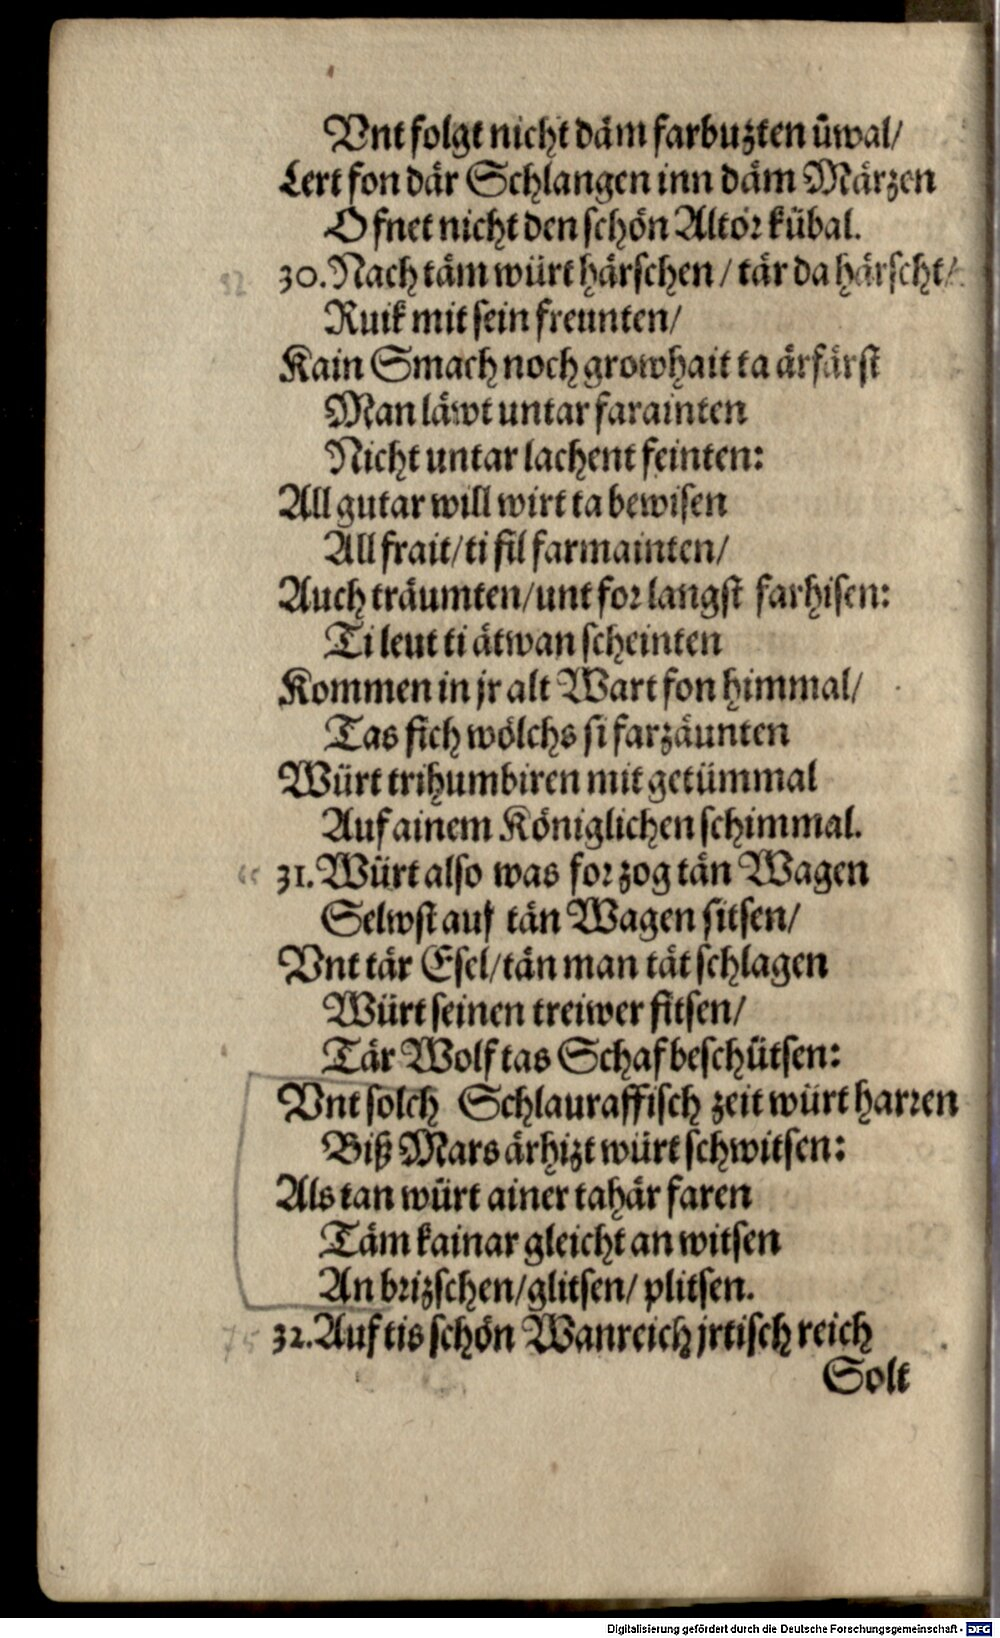 Vnt folgt nicht däm farbuzten ůwal/
Lert fon där Schlangen inn däm Märzen
Ofnet nicht den schön Altör kübal.
30. Nach täm würt härschen/ tär da härscht/
Ruik mit sein freunten/
Kain Smach noch growhait ta ärfärst
Man läwt untar farainten
Nicht untar lachent feinten:
All gutar will wirt ta bewisen
All frait/ ti fil farmainten/
Auch träumten/ unt for langst farhisen:
Ti leut ti ätwan scheinten
Kommen in jr alt Wart fon himmal/
Tas fich wölchs si farzäunten
Würt trihumbiren mit getümmal
Auf ainem Königlichen schimmal.
31. Würt also was for zog tän Wagen
Selwst auf tän Wagen sitsen/
Vnt tär Esel/ tän man tät schlagen
Würt seinen treiwer fitsen/
Tär Wolf tas Schaf beschütsen:
Vnt solch Schlauraffisch zeit würt harren
Biß Mars ärhizt würt schwitsen:
Als tan würt ainer tahär faren
Täm kainar gleicht an witsen
An brizschen/ glitsen/ plitsen.
32. Auf tis schön Wanreich jrtisch reich
Solt
Digitalisierung gefördert durch die Deutsche Forschungsgemeinschaft - DFG